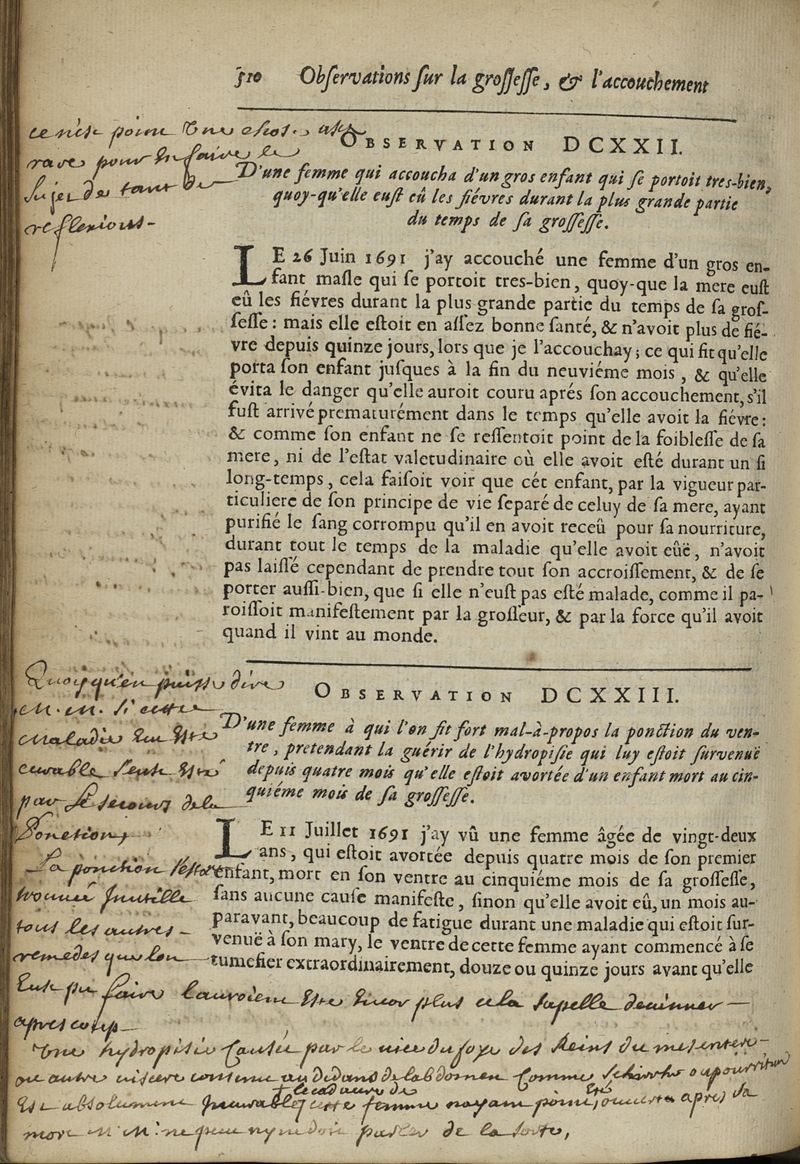 510 Obſervations ſur la groſſeſſe, & l'accouchement
ce n'est point Une chose asses
rare pour En faire le
Sujet de tant de
reflexions-
OBSERVATION DCXXII.
D'une femme qui accoucha d'un gros enfant qui ſe portoit tres-bien,
quoy-qu'elle euſt eû les fiévres durant la plus grande partie
du temps de ſa groſſeſſe.
LE 26 Juin 1691 j'ay accouché une femme d'un gros en-
fant maſle qui ſe portoit tres-bien, quoy-que la mere euſt
eû les fiévres durant la plus grande partie du temps de ſa groſ-
ſeſſe : mais elle eſtoit en aſſez bonne ſanté, & n'avoit plus de fié-
vre depuis quinze jours, lors que je l'accouchay ; ce qui fit qu'elle
porta ſon enfant juſques à la fin du neuviéme mois, & qu'elle
évita le danger qu'elle auroit couru aprés ſon accouchement, s'il
fuſt arrivé prematurément dans le temps qu'elle avoit la fiévre :
& comme ſon enfant ne ſe reſſentoit point de la foibleſſe de ſa
mere, ni de l'eſtat valetudinaire où elle avoit eſté durant un ſi
long-temps, cela faiſoit voir que cét enfant, par la vigueur par-
ticuliere de ſon principe de vie ſeparé de celuy de ſa mere, ayant
purifié le ſang corrompu qu'il en avoit receû pour ſa nourriture,
durant tout le temps de la maladie qu'elle avoit eûë, n'avoit
pas laiſſé cependant de prendre tout ſon accroiſſement, & de ſe
porter auſſi-bien, que ſi elle n'euſt pas eſté malade, comme il pa-
roiſſoit manifeſtement par la groſſeur, & par la force qu'il avoit
quand il vint au monde.
Quoyqu'en puisse dire
m. m. Si cette
maladie Eut Esté
curable Seut Esté
par le secours de la
Ponction,
La ponction sestant
trouvée Inutille
tous les autres -
remedes que lon
OBSERVATION DCXXIII.
D'une femme à qui l'on fit fort mal-à-propos la ponction du ven-
tre, pretendant la guérir de l'hydropiſie qui luy eſtoit ſurvenuë
depuis quatre mois qu'elle eſtoit avortée d'un enfant mort au cin-
quiéme mois de ſa groſſeſſe.
LE 11 Juillet 1691 j'ay vû une femme âgée de vingt-deux
ans, qui eſtoit avortée depuis quatre mois de ſon premier
enfant, mort en ſon ventre au cinquiéme mois de ſa groſſeſſe,
ſans aucune cauſe manifeſte, ſinon qu'elle avoit eû, un mois au-
paravant, beaucoup de fatigue durant une maladie qui eſtoit ſur-
venuë à ſon mary, le ventre de cette femme ayant commencé à ſe
tumefier extraordinairement, douze ou quinze jours avant qu'elle
Eut pu faire lauroient Esté Encor plus cela sapelle deviner -
apres coup -
Une hydropisie Causée par le vice du foye des Reins du mesentere -
ou autre viscere contenue au dedans de labdomen Comme Schirrhe ou pourriture
Est absolument Incurable le cadavre de cette femme nayant point esté ouverte apres sa
mort m. m. ne peut ny ne doit parler de la sorte,